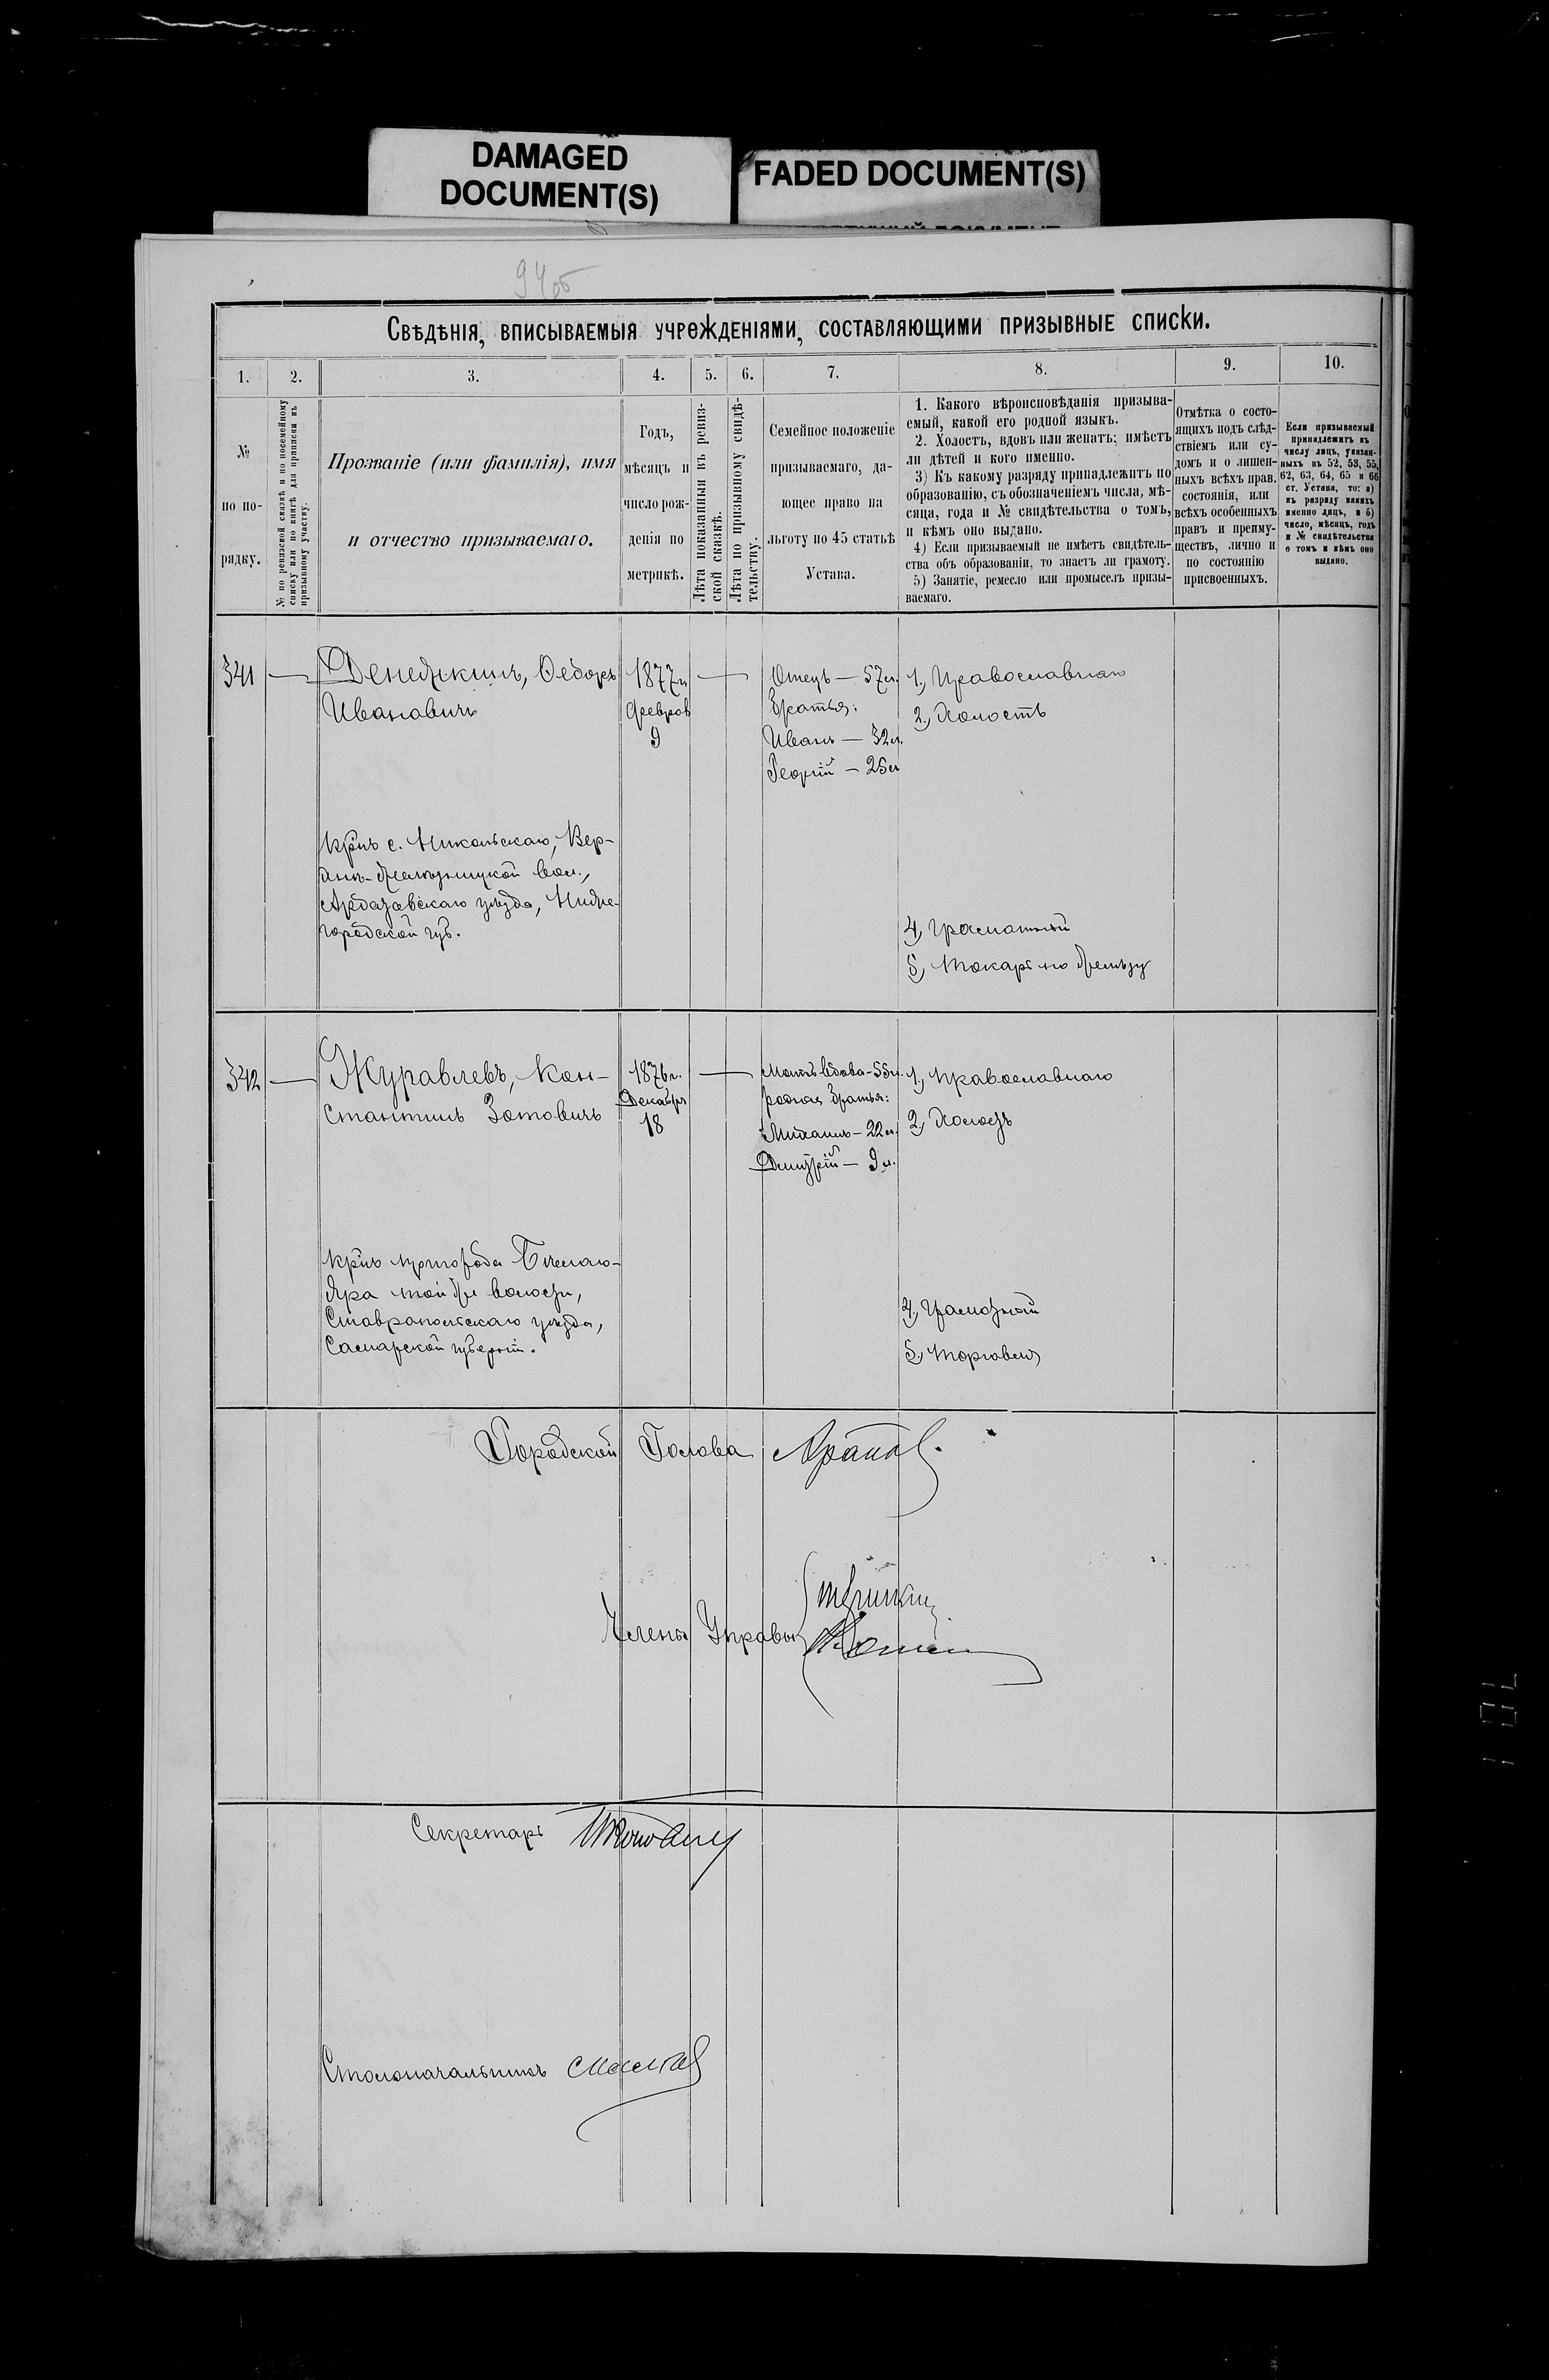 DAMAGED
DOCUMENT(S)
FADED DOCUMENT(S)
94об
Свѣдѣнія, вписываемыя учрежденіями, составляющими призывные списки.
1.
2.
3.
4.
5.
6.
7.
8.
9.
10.
№
по по-
рядку.
№ по ревизской сказкѣ и по посемейному
списку или по книгѣ для приписки къ
призывному участку.
Прозваніе (или фамилія), имя
и отчество призываемаго.
Годъ,
мѣсяцъ и
число рож-
денія по
метрикѣ.
Лѣта показанныя въ ревиз-
ской сказкѣ.
Лѣта по призывному свидѣ-
тельству.
Семейное положеніе
призываемаго, да-
ющее право на
льготу по 45 статьѣ
Устава.
1. Какого вѣроисповѣданія призыва-
емый, какой его родной языкъ.
2. Холостъ, вдовъ или женатъ; имѣетъ
ли дѣтей и кого именно.
3) Къ какому разряду принадлежитъ по
образованію, съ обозначеніемъ числа, мѣ-
сяца, года и № свидѣтельства о томъ,
и кѣмъ оно выдано.
4) Если призываемый не имѣетъ свидѣтель-
ства объ образованіи, то знаетъ ли грамоту.
5) Занятіе, ремесло или промыселъ призы-
ваемаго.
Отмѣтка о состо-
ящихъ подъ слѣд-
ствіемъ или су-
домъ и о лишен-
ныхъ всѣхъ прав.
состоянія, или
всѣхъ особенныхъ
правъ и преиму-
ществъ, лично и
по состоянію
присвоенныхъ.
Если призываемый
принадлежитъ къ
числу лицъ, указан-
ныхъ въ 52, 53, 55,
62, 63, 64, 65 и 66
ст. Устава, то: а)
къ разряду какихъ
именно лицъ, и б)
число, мѣсяцъ, годъ
и № свидѣтельства
о томъ и кѣмъ оно
выдано.
341
Денежкинъ, Ѳедоръ
Ивановичъ
1877 г.
Феврал
9
Отецъ — 57 л.
братья:
Иванъ — 32 л.
Георгій — 25 л
1, Православнаго
2, Холостъ
Крнъ с. Никольскаго, Вер-
Ардатовскаго уѣзда, Ниже-
городской губ.
4, Грамотный
5, Токарь по желѣзу
342
Журавлевъ, Кон-
стантинъ Зотовичъ
1876 г.
Декабря
18
Мать вдова — 55 л.
родные братья:
Михаилъ — 22 л.
Дмитрій — 9 л.
1, Православнаго
2, Холостъ
Крнъ пригорода Бѣлаго-
Яра той же волости,
Ставропольскаго уѣзда,
Самарской губерніи.
4, Грамотный
5, Торговля
Городской Голова Арапов
Члены Управы
Секретарь
Столоначальникъ